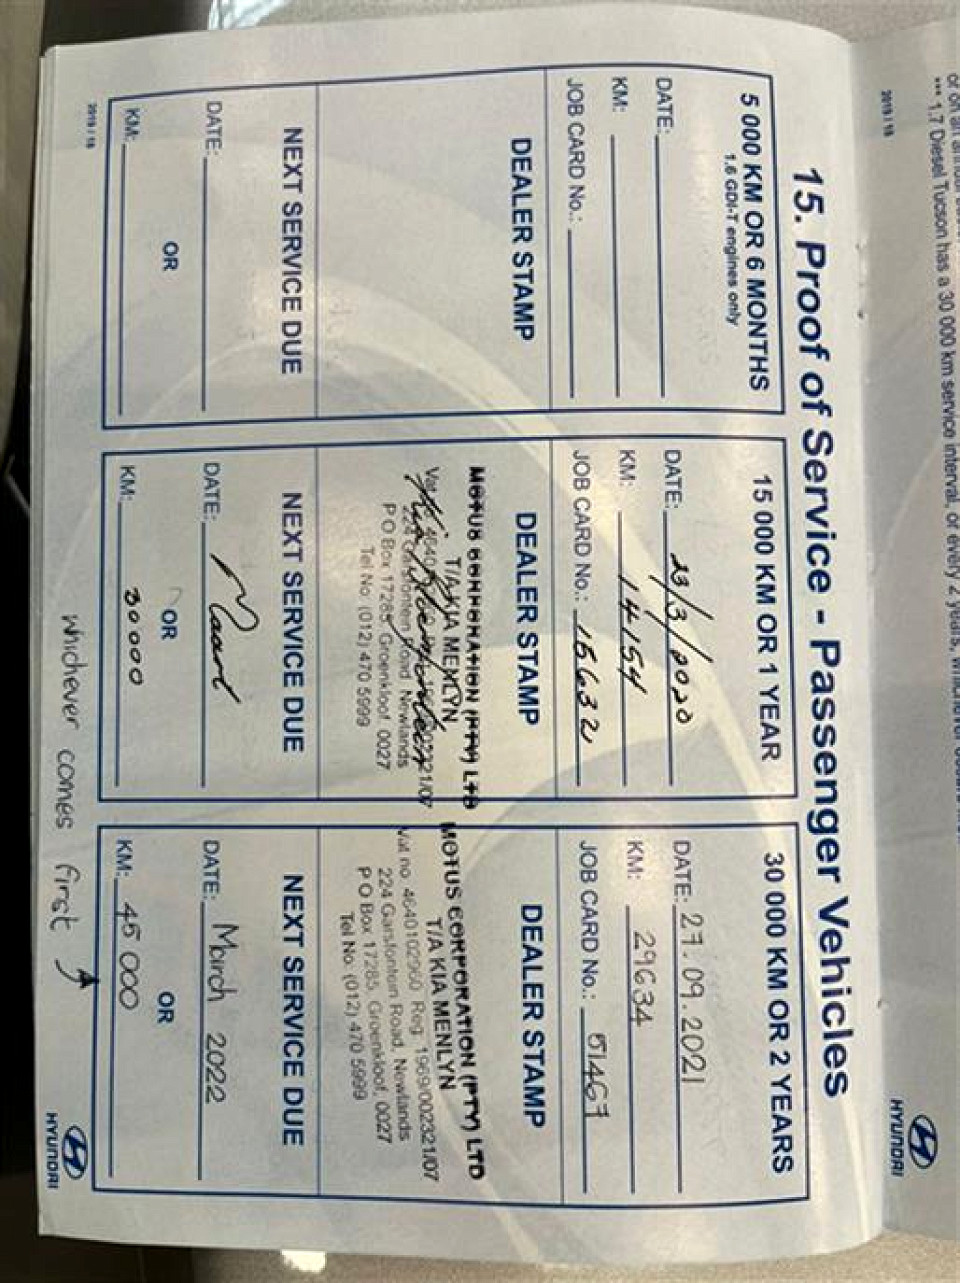 or on an annual
*** 1.7 Diesel Tucson has a 30 000 km service interval, or every 2 years, whichever
2019 / 18
HYUNDAI
15. Proof of Service - Passenger Vehicles
5 000 KM OR 6 MONTHS
1.6 GDI-T engines only
DATE:
KM:
JOB CARD No.:
DEALER STAMP
NEXT SERVICE DUE
DATE:
OR
KM:
15 000 KM OR 1 YEAR
DATE: 23/3/2020
KM: 14154
JOB CARD No.: 15632
DEALER STAMP
MOTUS CORPORATION (PTY) LTD
T/A KIA MENLYN
224 Garsfontein Road, Newlands
P O Box 17285, Groenkloof, 0027
Tel No. (012) 470 5999
NEXT SERVICE DUE
DATE:
OR
KM: 30 000
30 000 KM OR 2 YEARS
DATE: 27.09.2021
KM: 29634
JOB CARD No.: 51467
DEALER STAMP
MOTUS CORPORATION (PTY) LTD
T/A KIA MENLYN
Vat no. 4640102960 Reg. 1969/002321/07
224 Garsfontein Road, Newlands
P O Box 17285, Groenkloof, 0027
Tel No. (012) 470 5999
NEXT SERVICE DUE
DATE: March 2022
OR
KM: 45 000
whichever comes first
2019 / 18
HYUNDAI